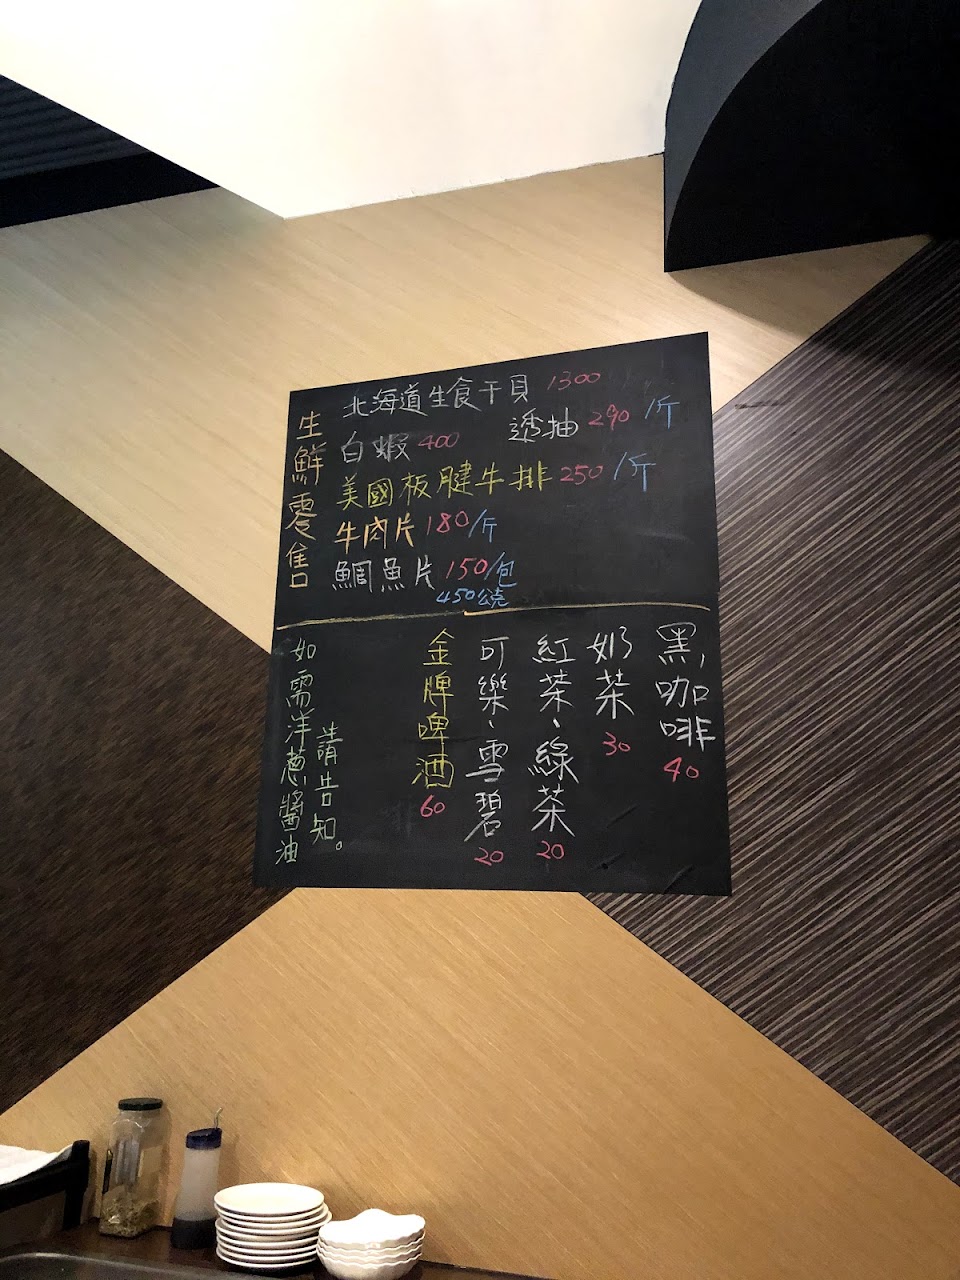 生鮮零售
北海道生食干貝 1300
白蝦 400 透抽 290 /斤
美國板腱牛排 250 /斤
牛肉片 180/斤
鯛魚片 150/包
450公克
黑咖啡 40
奶茶 30
紅茶、綠茶 20
可樂、雪碧 20
金牌啤酒 60
請告知。
如需洋蔥醬油